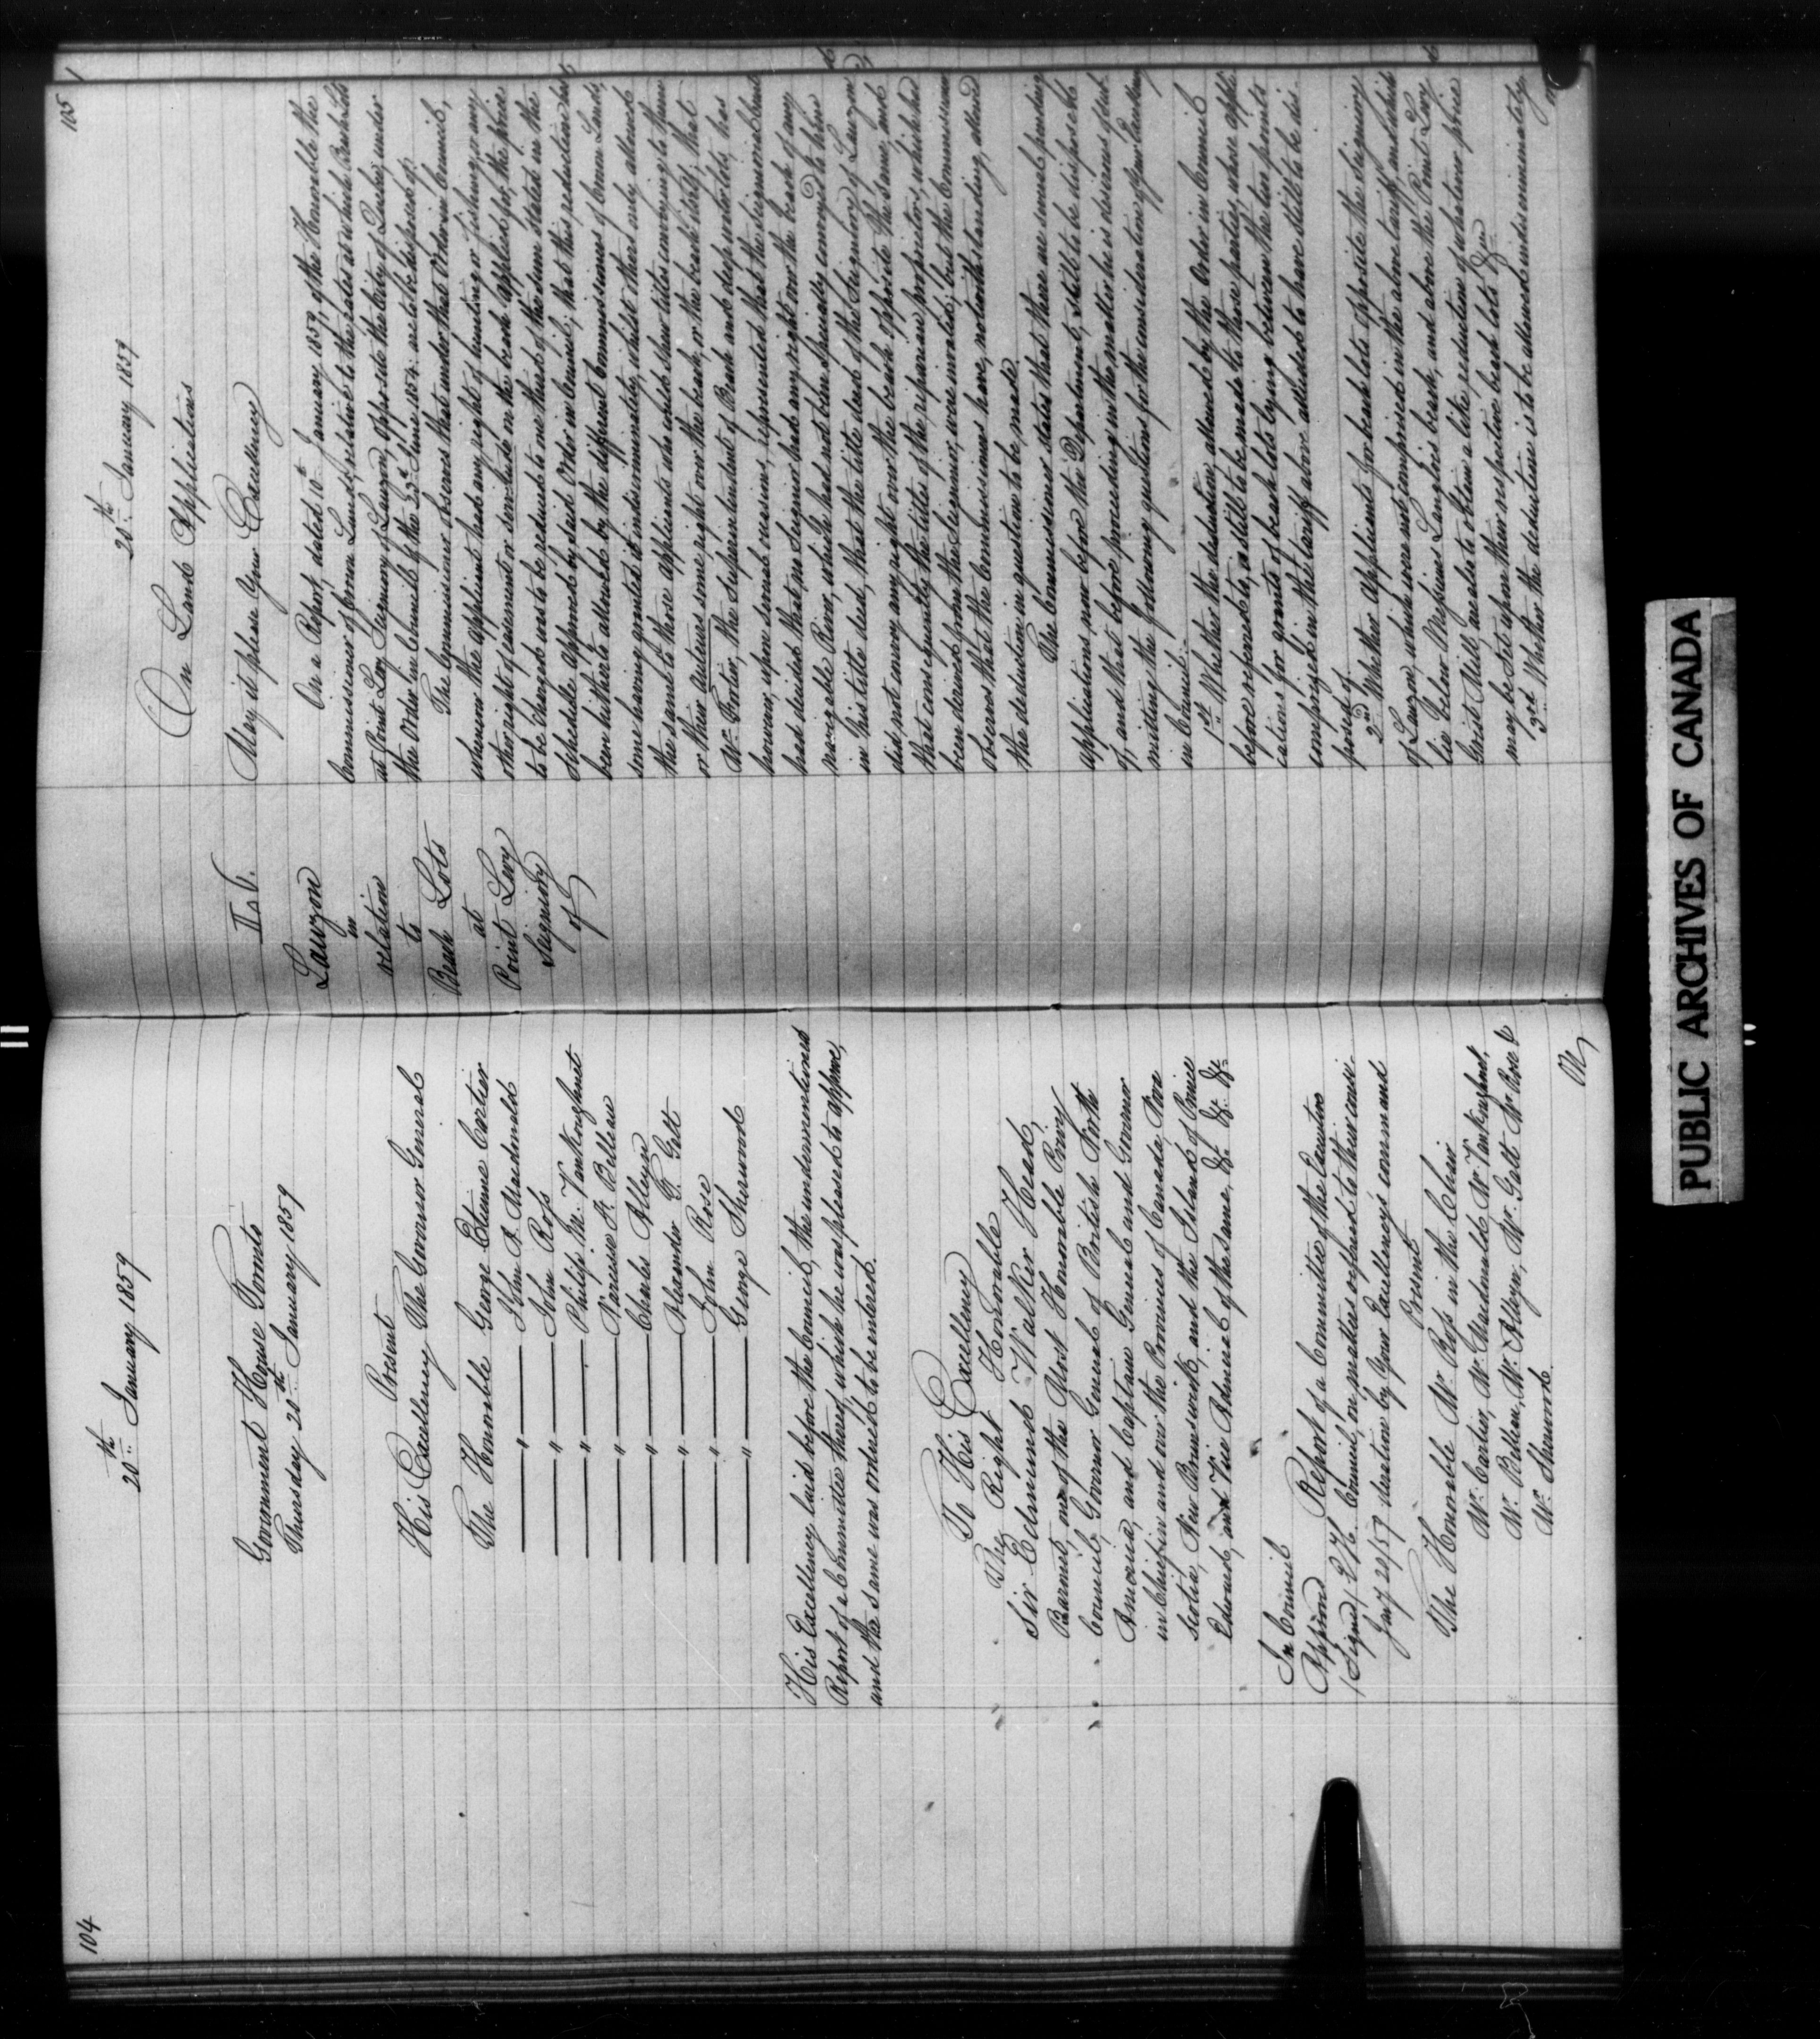 104
20th January 1859
Government House Toronto
Thursday 20th January 1859
Present
His Excellency The Governor General
The Honorable George Etienne Cartier
" John A. Macdonald
" John Ross
" Philip M. Vankoughnet
" Narcisse F. Belleau
" Charles Alleyn
" Alexander T. Galt
" John Rose
" George Sherwood
His Excellency laid before the Council, the undermentioned
Report of a Committee thereof, which he was pleased to approve,
and the same was ordered to be entered.
To His Excellency
The Right Honorable
Sir Edmund Walker Head,
Baronet, one of the Most Honorable Privy
Council, Governor General of British North
America, and Captain General and Governor
in Chief in and over the Provinces of Canada, Nova
Scotia, New Brunswick, and the Island of Prince
Edward, and Vice Admiral of the same, &c &c &c
In Council
Approved
(Signed) E. H.
Jany 20/59
Report of a Committee of the Executive
Council, on matters referred to their consi-
deration by Your Excellency's command
Present
The Honorable Mr. Ross in the Chair
Mr. Cartier, Mr. Macdonald, Mr. Vankoughnet,
Mr. Belleau, Mr. Alleyn, Mr. Galt Mr. Rose &
Mr. Sherwood.
On
105
20th January 1859
On Land Applications
II a b.
Lauzon
in
relation
to
Beach Lots
at
Point Levy
Seigniory
of
May it please Your Excellency
On a Report, dated 10th January 1859, of the Honorable the
Commissioner of Crown Lands, relative to the rates at which Beach Lots
at Point Levy, Seigniory of Lauzon, opposite the City of Quebec, under
the Order in Council of the 23d June 1854. are to be disposed of.
The Commissioner observes that under that Order in Council,
whenever the applicant had any right of hunting or fishing, or any
other right of easement or servitude on the beach applied for, the price
to be charged was to be reduced to one third of the sum stated in the
Schedule approved by said Order in Council; that this reduction has
been hitherto allowed by the different Commissioners of Crown Lands,
some having granted it indiscriminately, whilst others only allowed
the same to those applicants who held their titles conveying to them
or their auteurs some right over the beach, or the beach itself; that
Mr. Fortier, the Superintendent of Beach and deep water lots, has
however, upon several occasions, represented that the Seigniorial Court
had decided that, no Seignior had any right over the beach of any
navigable River, which had not been specially conveyed to him
in his title deed, that the title deed of the Seigniory of Lauzon
did not convey any right over the beach opposite the same, and
that consequently the titles of the riparian proprietors, which had
been derived from the Seignior, were invalid; but the Commissioner
observes that the Commissioners have, notwithstanding, allowed
the deduction in question to be made.
The Commissioner states that there are several pending
applications now before the Department, still to be disposed
of, and that before proceeding in the matter he is desirous of sub-
mitting the following questions for the consideration of Your Excellency
in Council.
1st Whether the deduction allowed by the Order in Council
before referred to, is still to be made to those parties, whose appli-
cations for grants of beach lots lying between the two points
comprised in the tariff above alluded to have still to be dis-
posed of
2nd Whether applicants for beach lots opposite the Seigniory
of Lauzon, which were not comprised in the above tariff, and which
lie below Messieurs Langlois beach, and above the Point Levy
Grist Mill, are also to obtain a like reduction of whatever price
may be set upon their respective beach lots
3rd Whether the deduction is to be allowed indiscriminately
PUBLIC ARCHIVES OF CANADA